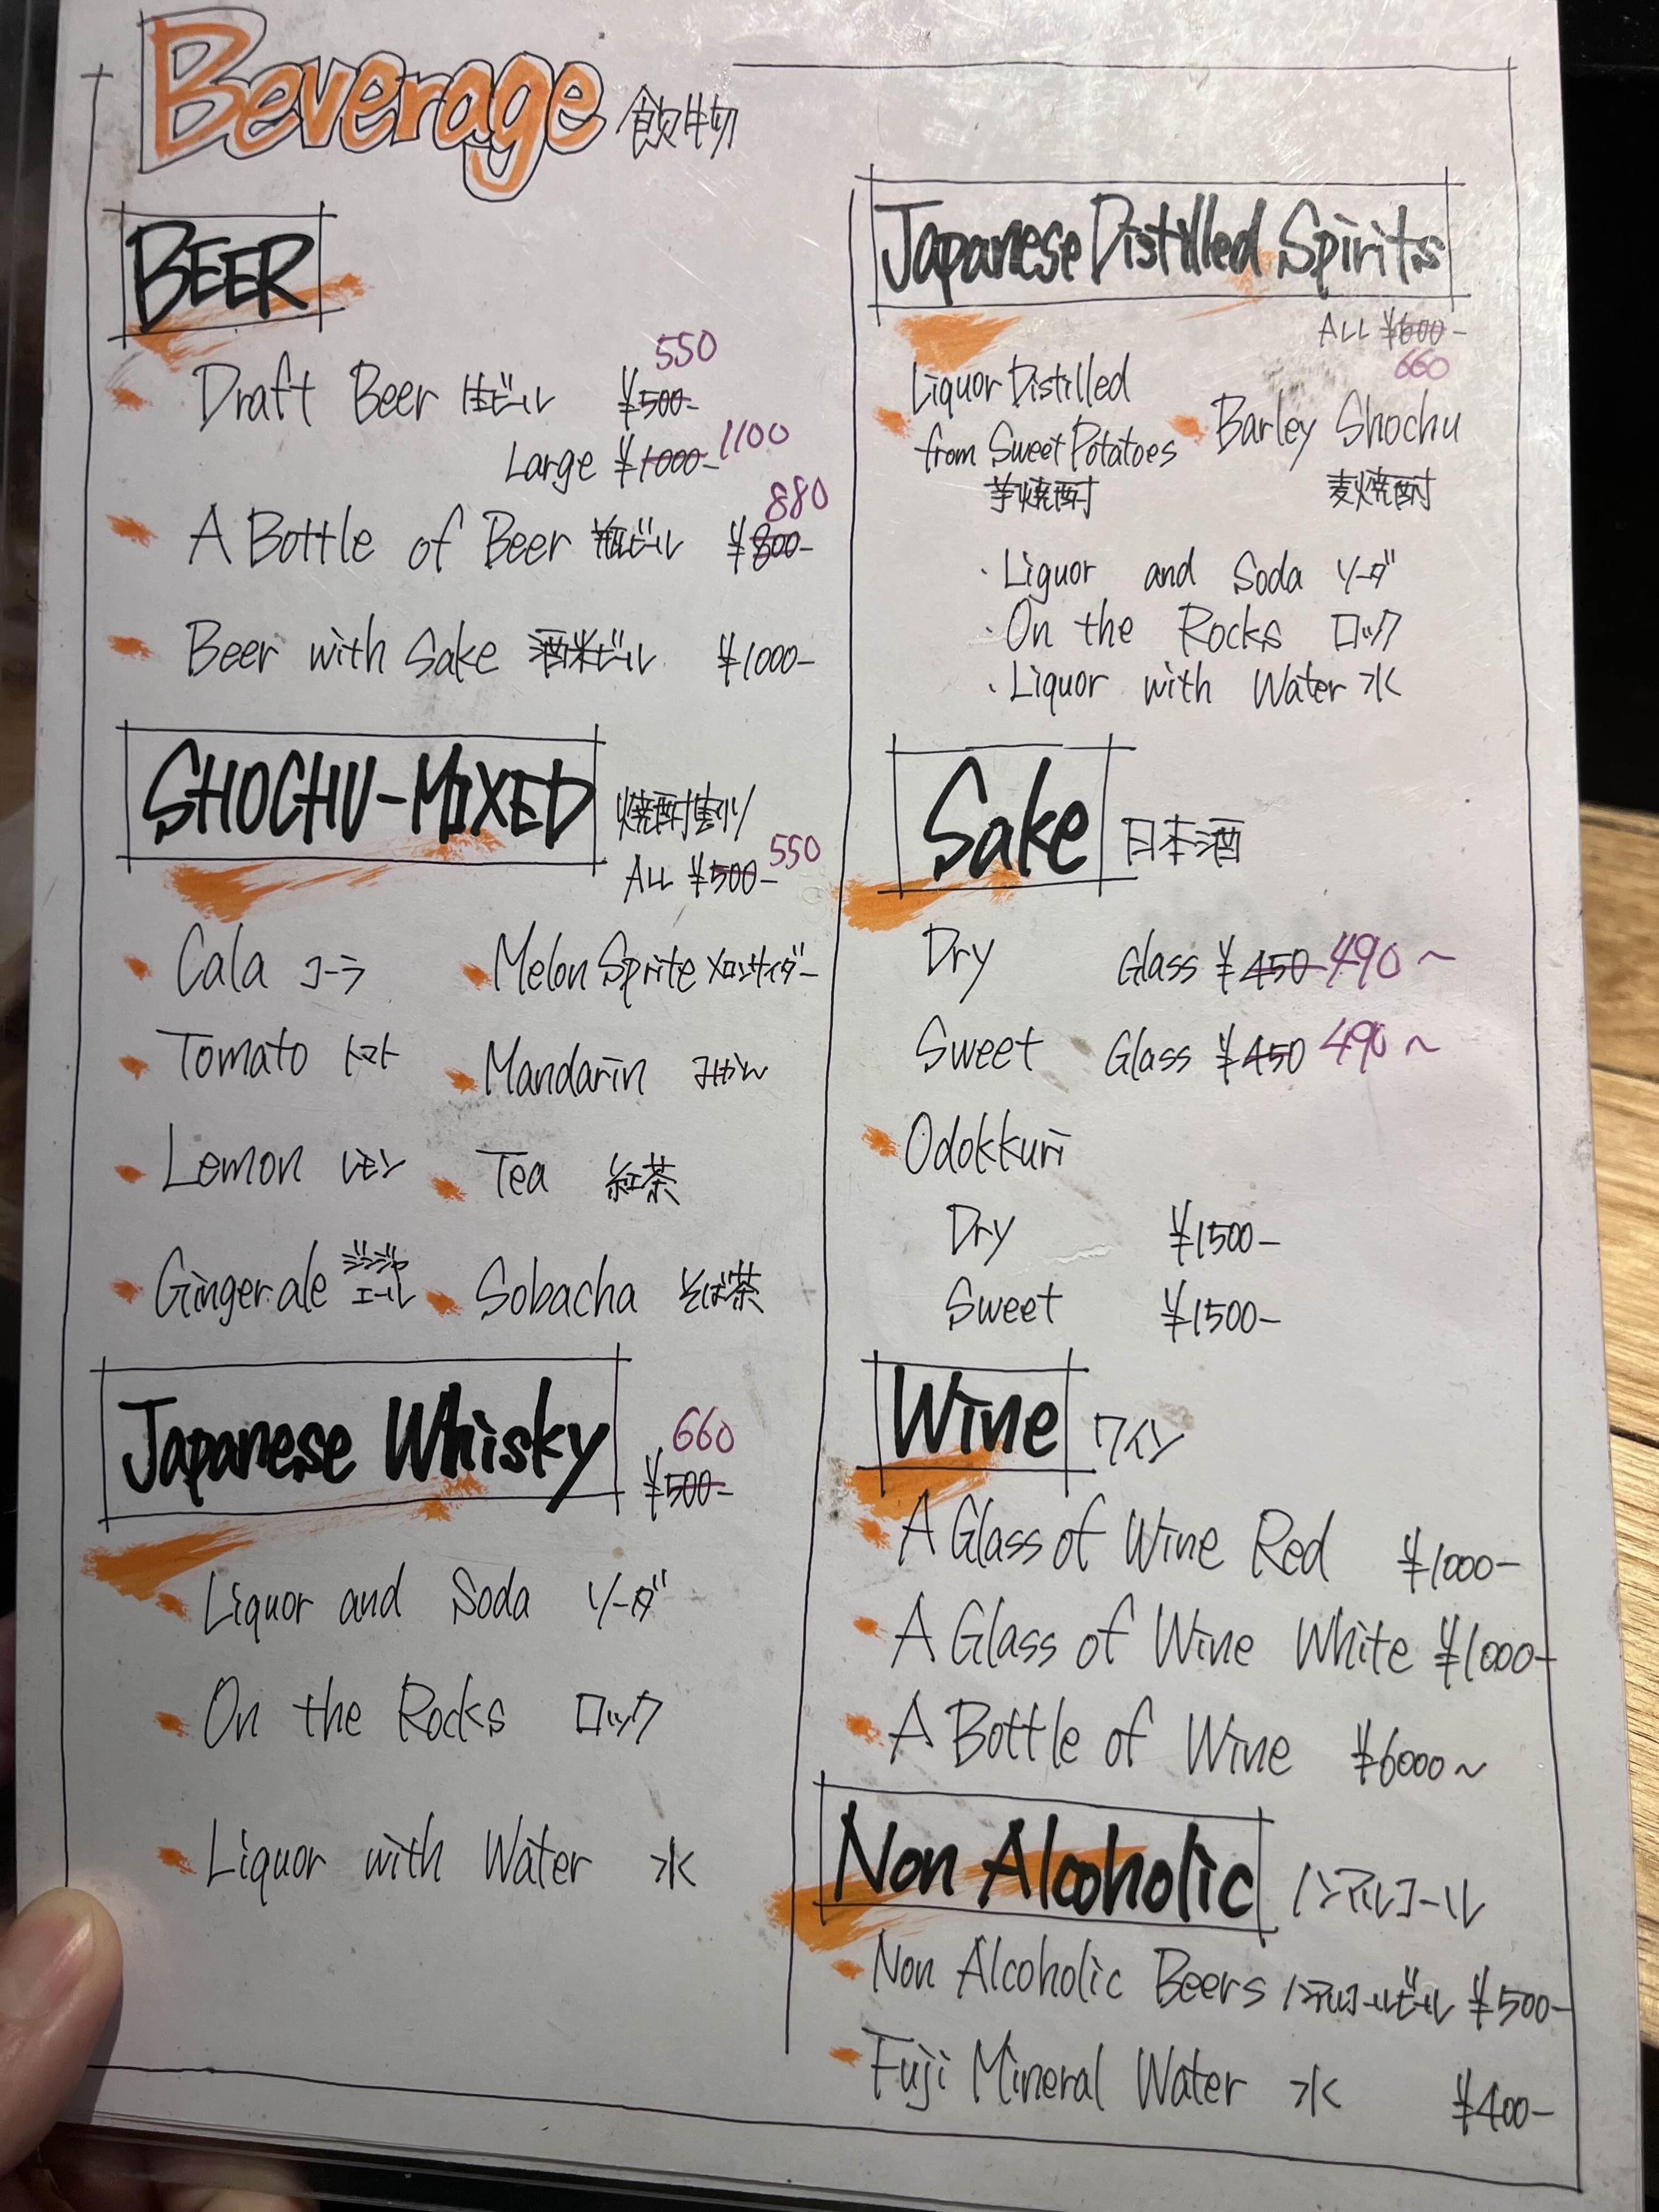 Beverage 飲物
BEER
550
Draft Beer 生ビール ¥500-
Large ¥1000- 1100
880
A Bottle of Beer 瓶ビール ¥800-
Beer with Sake 酒米ビール ¥1000-
SHOCHU-MIXED 焼酎割り
ALL ¥500- 550
Cala コーラ
Melon Sprite メロンサイダー
Tomato トマト
Mandarin みかん
Lemon レモン
Tea 紅茶
Ginger.ale ジンジャエール
Sobacha そば茶
Japanese Whisky
660
¥500-
Liquor and Soda ソーダ
On the Rocks ロック
Liquor with Water 水
Japanese Distilled Spirits
ALL ¥600-
660
Liquor Distilled
from Sweet Potatoes
芋焼酎
Barley Shochu
麦焼酎
・Liguor and Soda ソーダ
・On the Rocks ロック
・Liquor with Water 水
Sake 日本酒
Dry Glass ¥450- 490~
Sweet Glass ¥450 490~
Odokkuri
Dry ¥1500-
Sweet ¥1500-
Wine ワイン
A Glass of Wine Red ¥1000-
A Glass of Wine White ¥1000-
A Bottle of Wine ¥6000~
Non Alcoholic ノンアルコール
Non Alcoholic Beers ノンアルコールビール ¥500-
Fuji Mineral Water 水 ¥400-